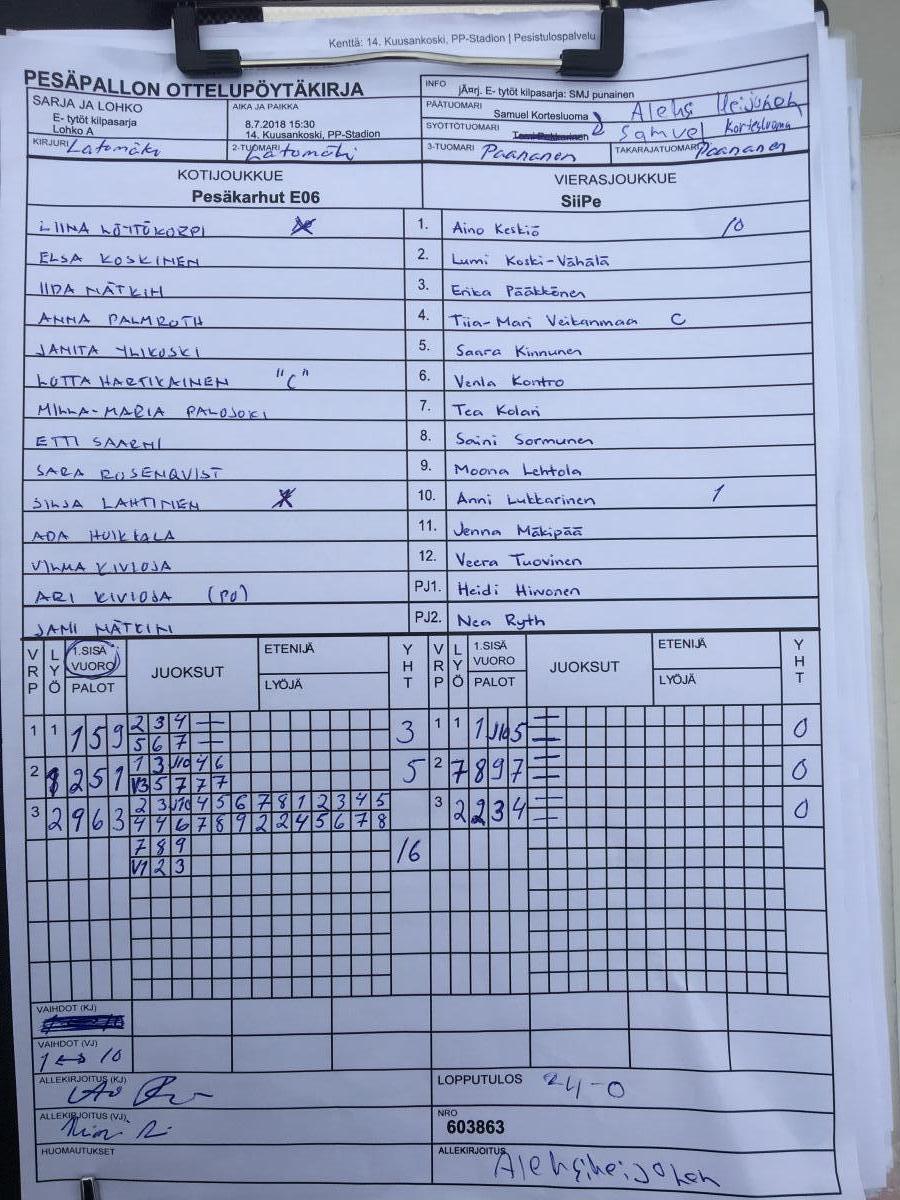 Kenttä: 14. Kuusankoski, PP-Stadion | Pesistulospalvelu
PESÄPALLON OTTELUPÖYTÄKIRJA
INFO jÃ¤rj. E- tytöt kilpasarja: SMJ punainen
SARJA JA LOHKO
E- tytöt kilpasarja
Lohko A
AIKA JA PAIKKA
8.7.2018 15:30
14. Kuusankoski, PP-Stadion
PÄÄTUOMARI Samuel Kortesluoma Aleksi
SYÖTTÖTUOMARI Samuel Kortesluoma
KIRJURI Latomäki
2-TUOMARI Latomäki
3-TUOMARI Paananen
TAKARAJATUOMARI Paananen
KOTIJOUKKUE
Pesäkarhut E06
VIERASJOUKKUE
SiiPe
LIINA LÖYTÖKORPI 1. Aino Keskiö 10
ELSA KOSKINEN 2. Lumi Koski-Vähälä
IIDA MÄTKIN 3. Erika Pääkkönen
ANNA PALMROTH 4. Tiia-Mari Veikanmaa C
JANITA YLIKOSKI 5. Saara Kinnunen
LOTTA HARTIKAINEN "C" 6. Venla Kontro
MILLA-MARIA PALOJOKI 7. Tea Kolari
ETTI SAARNI 8. Saini Sormunen
SARA ROSENQVIST 9. Moona Lehtola
SILJA LAHTINEN 10. Anni Lukkarinen 1
ADA HUIKKALA 11. Jenna Mäkipää
VILMA KIVIOJA 12. Veera Tuovinen
ARI KIVIOJA (PO) PJ1. Heidi Hirvonen
JAMI MÄTKIN PJ2. Nea Ryth
VRP LYÖ 1.SISÄ VUORO PALOT JUOKSUT ETENIJÄ LYÖJÄ YHT VRP LYÖ 1.SISÄ VUORO PALOT JUOKSUT ETENIJÄ LYÖJÄ YHT
1 1 1 5 9 2 3 4 — 3 1 1 1 J10 5 — 0
5 6 7 — —
2 2 5 1 1 3 J10 4 6 5 2 7 8 9 7 — 0
V3 5 7 7 7 —
3 2 9 6 3 2 3 J10 4 5 6 7 8 1 2 3 4 5 3 2 2 3 4 — 0
4 4 6 7 8 9 2 2 4 5 6 7 8 —
7 8 9 16
V1 2 3
VAIHDOT (KJ)
VAIHDOT (VJ)
1 ↔ 10
ALLEKIRJOITUS (KJ)
LOPPUTULOS 24-0
ALLEKIRJOITUS (VJ)
NRO
603863
HUOMAUTUKSET
ALLEKIRJOITUS